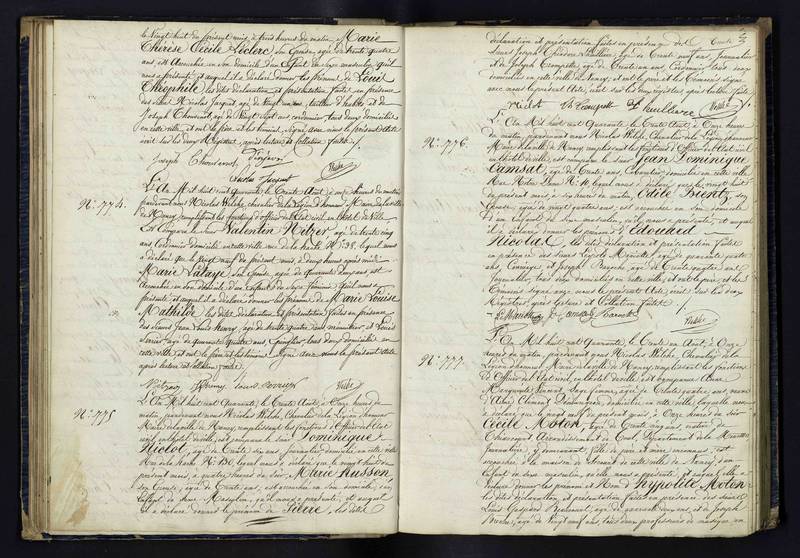 le vingt huit du présent mois, à trois heures du matin, Marie
Thérèse Cécile Leclerc, son épouse, agée de trente quatre
ans est accouchée en son domicile d'un Enfant du sexe masculin, qu'il
nous a présenté et auquel il a déclaré donner les prénoms de Louis
Théophile les dites déclaration et présentation faites en présence
des Sieurs Nicolas Jacquot, agé de vingt un ans, et de
Joseph Thouvenot, agé de vingt sept ans cordonnier, tous deux domiciliés
en cette ville, et ont le père et les témoins, signé avec nous le présent Acte
écrit sur les deux Registres, après lecture et Collation faite.
Joseph Thouvenot
Nicolas Jacquot
N.° 774.
L'An Mil huit cent Quarante, le Trente Août, à onze heures du matin
pardevant nous Nicolas Welche, chevalier de la Légion d'honneur, Maire de la ville
de Nancy, remplissant les fonctions d'officier de l'Etat civil en l'hôtel de Ville
Est Comparu le Sieur Valentin Nitzer, agé de trente cinq
ans, Cordonnier domicilié en cette ville rue de la hache N.° 98, lequel nous
a déclaré que le vingt neuf du présent mois, à deux heures après midi
Marie Lataye son épouse, agée de quarante deux ans, est
accouchée en son domicile d'un Enfant du Sexe féminin qu'il nous a
présenté et auquel il a déclaré donner les prénoms de Marie Louise
Mathilde les dites déclaration et présentation faites en présence
des Sieurs Jean Louis Henry, agé de trente quatre ans menuisier, et Louis
agé de quarante quatre ans, tous deux domiciliés en
cette ville, et ont le père et les témoins signé avec nous le présent acte
après lecture et collation faite.
N.° 775
L'An Mil huit cent Quarante, le Trente Août, à onze heures du
matin, pardevant nous Nicolas Welche, Chevalier de la Légion d'honneur
Maire de la ville de Nancy, remplissant les fonctions d'officier de l'Etat
civil en l'hôtel de ville, est comparu le Sieur Dominique
Niclot, agé de Trente six ans Journalier, domicilié en cette ville
Rue de la hache N.° 130, lequel nous a déclaré que le vingt huit du
présent mois, à quatre heures du soir, Marie Husson
son Epouse, agée de trente ans, est accouchée en son domicile, d'un
Enfant du Sexe Masculin, qu'il nous a présenté, et auquel
il a déclaré donner le prénom de Pierre, les dites
déclaration et présentation faites en présence des
Sieurs Joseph Théodore Lhuillière, agé de Trente neuf ans, Journalier
et de Joseph Trompette, agé de Trente cinq ans, Cordonnier, tous deux
domiciliés en cette ville de Nancy, et ont le père et les témoins signé
avec nous le présent Acte, écrit sur les deux registres, après lecture faite.
Niclot
N.° 776.
L'An Mil huit cent Quarante, le Trente Août, à Onze heures
du matin, pardevant nous Nicolas Welche, Chevalier de la Légion d'honneur
Maire de la ville de Nancy, remplissant les fonctions d'Officier de l'Etat civil
en l'hôtel de ville, est comparu le Sieur Jean Dominique
Camsat, agé de Trente ans, domicilié en cette ville
lequel nous a déclaré que le vingt huit
du présent mois, à six heures du matin, Odile Bientz, son
épouse, agée de vingt quatre ans, est accouchée en son domicile
d'un Enfant du Sexe masculin, qu'il nous a présenté, et auquel
il a déclaré donner les prénoms d'Edouard
Nicolas, les dites déclaration et présentation faites
en présence des Sieurs Léopold agé de quarante quatre
ans, et Joseph agé de Trente quatre ans
Journalier, tous deux domiciliés en cette ville, et ont le père, et les
témoins signé avec nous le présent Acte écrit sur les deux
Registres, après lecture et Collation faite.
N.° 777.
L'An Mil huit cent Quarante, le Trente Août, à Onze
heures du matin, pardevant nous Nicolas Welche, Chevalier de la
Légion d'honneur Maire de la ville de Nancy, remplissant les fonctions
d'Officier de l'Etat civil, en l'hôtel de ville, est comparue Anne
Marguerite Simonet, Sage femme, agée de Trente ans, veuve
d'Aimé Clément domiciliée en cette ville, laquelle nous
a déclaré que le vingt neuf du présent mois, à Onze heures du Soir
Cécile Moton, agée de Trente cinq ans, native de
Arrondissement de Toul, Département de la Meurthe
Journalière, y demeurant, fille de père et mère est
accouchée à la maison de Secours en cette ville de Nancy, d'un
Enfant du Sexe masculin, qu'elle nous a présenté, et auquel elle a
déclaré donner les prénom et Nom d'Hypolite Moton
les dites déclaration et présentation faites en présence des Sieurs
Louis Gaspard agé de quarante deux ans, et de Joseph
agé de vingt neuf ans, tous deux professeurs de musique, en